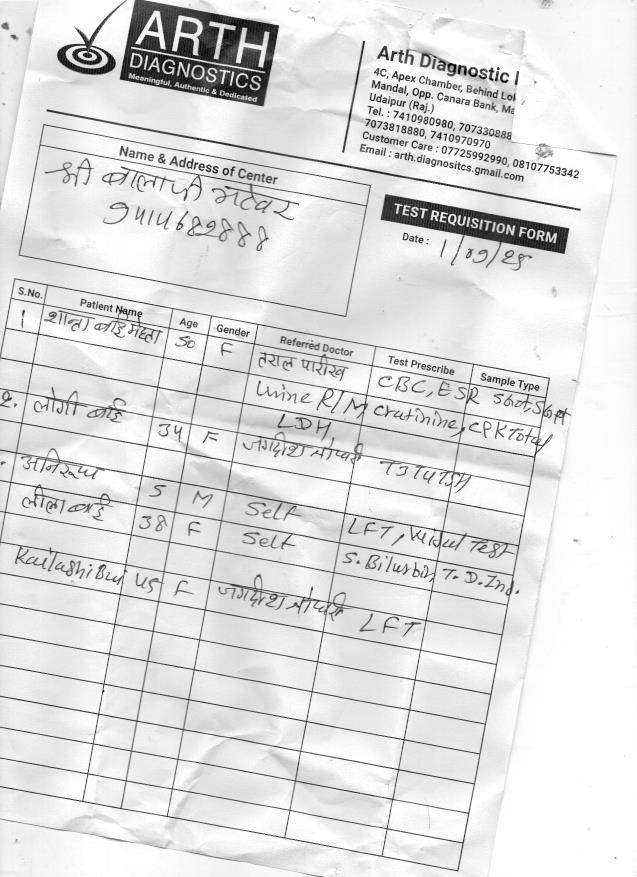 ARTH
DIAGNOSTICS
Meaningful, Authentic & Dedicated
Arth Diagnostic
4C, Apex Chamber, Behind
Mandal, Opp. Canara Bank,
Udaipur (Raj.)
Tel. : 7410980980, 707330888
7073818880, 7410970970
Customer Care : 07725992990, 08107753342
Email : arth.diagnositcs.gmail.com
Name & Address of Center
श्री बालाजी भटेवर
9414689888
TEST REQUISITION FORM
Date : 1/09/25
S.No. Patient Name Age Gender Referred Doctor Test Prescribe Sample Type
1 शान्ता बाई मेहता 50 F तराल पारीख CBC, ESR Sgot, Sgpt
Urine R/M Cratinine, CPK Total
LDH,
2. लोगी बाई 34 F जगदीश T3T4TSH
अनिरूध 5 M Self LFT, Test
लीला बाई 38 F Self S. Bilurbin, T. D. Ind.
Kailashi Bai 45 F जगदीश LFT